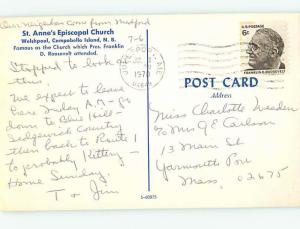 Our neighbor come from Medford
St. Anne's Episcopal Church
Welshpool, Campobello Island, N. B.
Famous as the Church which Pres. Franklin
D. Roosevelt attended.
7-6
Stopped to look at
this.
We expect to leave
here Friday A.M - go
down to Blue Hill -
Sedgewick Country
then back to Route 1
to probably Kittery -
Home Sunday.
T & Jim
U.S. POSTAGE
6¢
FRANKLIN D. ROOSEVELT
1970
POST CARD
Address
Miss Charlotte
c/o Mrs G E Carlson
13 Main St
Yarmouth Port
Mass. 02675